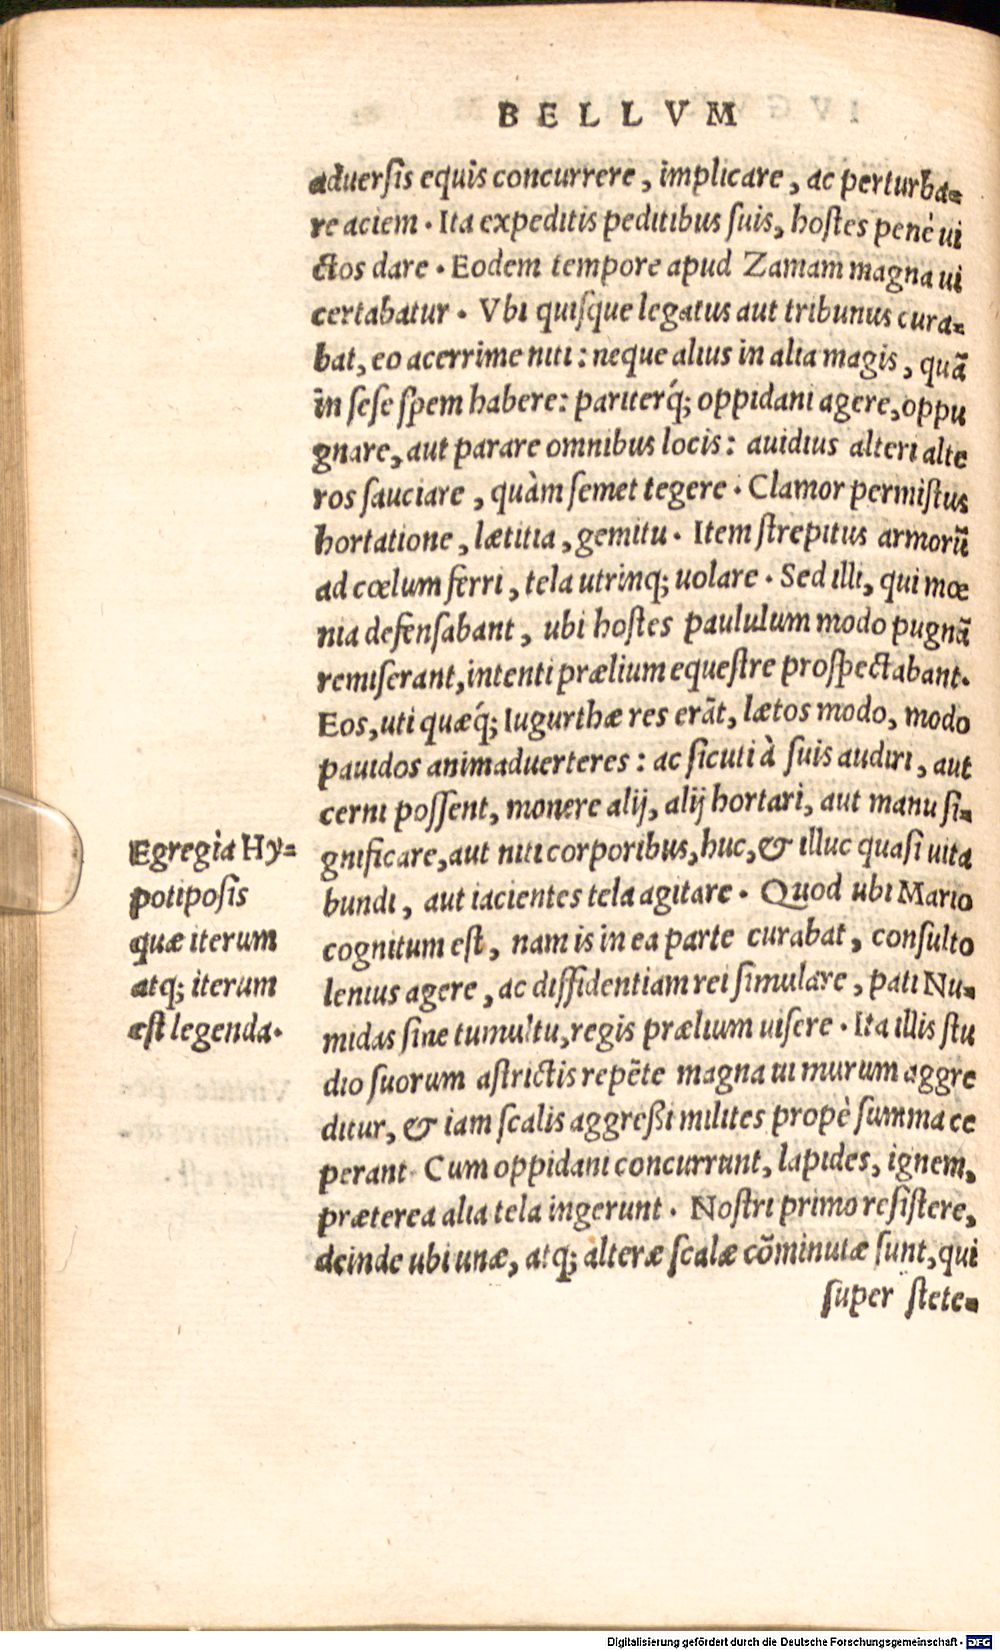 BELLVM
aduersis equis concurrere, implicare, ac perturba=
re aciem. Ita expeditis peditibus suis, hostes penè ui
ctos dare. Eodem tempore apud Zamam magna ui
certabatur. Vbi quisque legatus aut tribunus cura=
bat, eo acerrime niti: neque alius in alia magis, quã
in sese spem habere: pariterq́; oppidani agere, oppu
gnare, aut parare omnibus locis: auidius alteri alte
ros sauciare, quàm semet tegere. Clamor permistus
hortatione, lætitia, gemitu. Item strepitus armorũ
ad cœlum ferri, tela utrinq; uolare. Sed illi, qui mœ
nia defensabant, ubi hostes paululum modo pugnã
remiserant, intenti prælium equestre prospectabant.
Eos, uti quæq́; Iugurthæ res erãt, lætos modo, modo
pauidos animaduerteres: ac sicuti à suis audiri, aut
cerni possent, monere alij, alij hortari, aut manu si=
gnificare, aut niti corporibus, huc, & illuc quasi uita
bundi, aut iacientes tela agitare. Quod ubi Mario
cognitum est, nam is in ea parte curabat, consulto
lenius agere, ac diffidentiam rei simulare, pati Nu=
midas sine tumultu, regis prælium uisere. Ita illis stu
dio suorum astrictis repẽte magna ui murum aggre
ditur, & iam scalis aggreßi milites propè summa ce
perant. Cum oppidani concurrunt, lapides, ignem,
præterea alia tela ingerunt. Nostri primo resistere,
deinde ubi unæ, atq; alteræ scalæ cõminutæ sunt, qui
super stete=
Egregia Hy=
potiposis
quæ iterum
atq; iterum
est legenda.
Digitalisierung gefördert durch die Deutsche Forschungsgemeinschaft - DFG